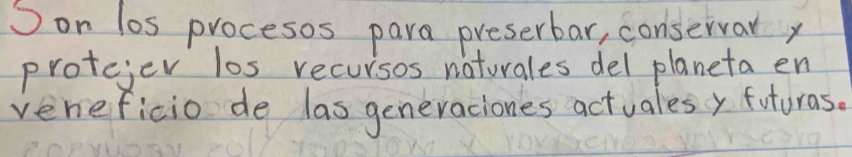 Son los procesos para preserbar, conservar y
protejer los recursos naturales del planeta en
veneficio de las generaciones actuales y futuras.